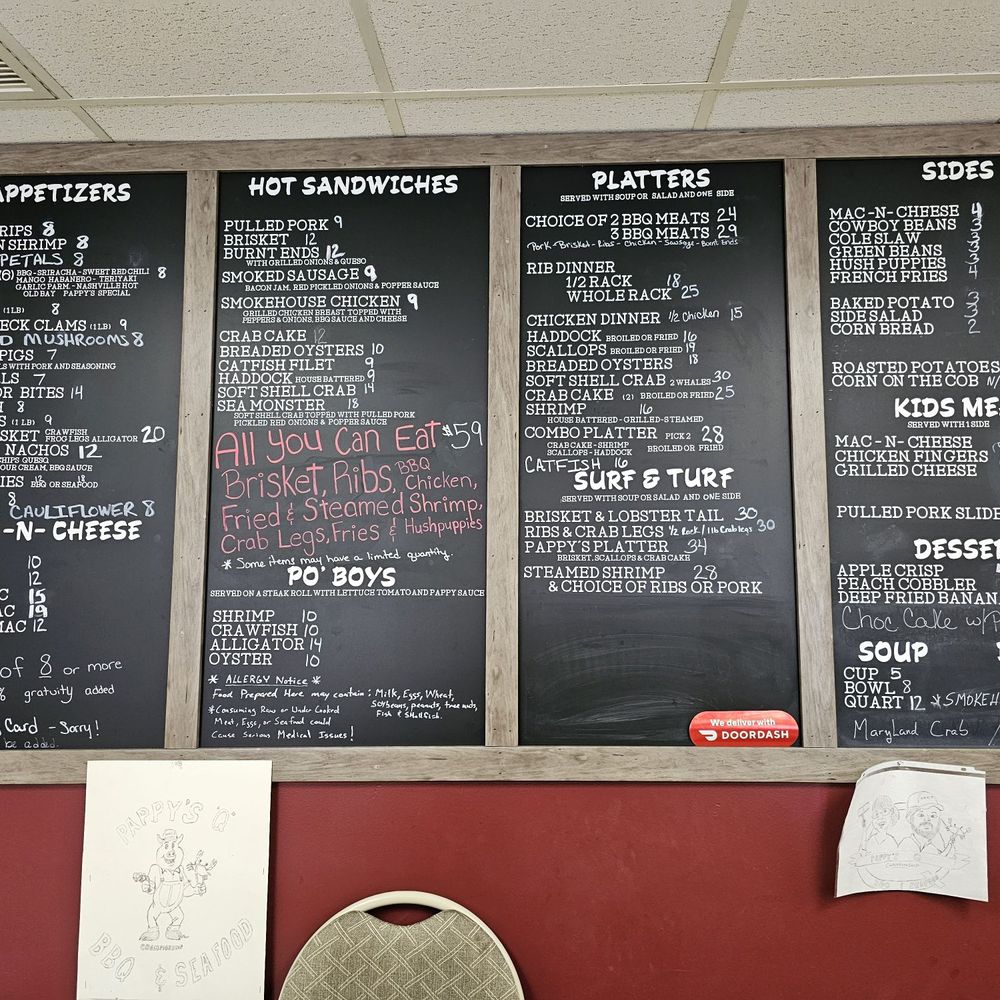 APPETIZERS
RIPS 8
N SHRIMP 8
PETALS 8
BBQ - SRIRACHA - SWEET RED CHILI 8
MANGO HABANERO - TERIYAKI
GARLIC PARM - NASHVILLE HOT
OLD BAY PAPPY'S SPECIAL
(1LB) 8
ECK CLAMS (1LB) 9
D MUSHROOMS 8
PIGS 7
LS WITH PORK AND SEASONING
LS 7
OR BITES 14
H 8
S (1 LB) 9
SKET CRAWFISH
FROG LEGS ALLIGATOR 20
NACHOS 12
CHIPS QUESO
OUR CREAM, BBQ SAUCE
IES 12 18
BBQ OR SEAFOOD
8
CAULIFLOWER 8
-N- CHEESE
10
12
C 15
AC 19
MAC 12
of 8 or more
% gratuity added
Card - Sorry!
be added.
HOT SANDWICHES
PULLED PORK 9
BRISKET 12
BURNT ENDS 12
WITH GRILLED ONIONS & QUESO
SMOKED SAUSAGE 9
BACON JAM, RED PICKLED ONIONS & POPPER SAUCE
SMOKEHOUSE CHICKEN 9
GRILLED CHICKEN BREAST TOPPED WITH
PEPPERS & ONIONS, BBQ SAUCE AND CHEESE
CRAB CAKE 12
BREADED OYSTERS 10
CATFISH FILET 9
HADDOCK HOUSE BATTERED 9
SOFT SHELL CRAB 14
SEA MONSTER 18
SOFT SHELL CRAB TOPPED WITH PULLED PORK
PICKLED RED ONIONS & POPPER SAUCE
All You Can Eat $59
Brisket, Ribs, BBQ Chicken,
Fried & Steamed Shrimp,
Crab Legs, Fries & Hushpuppies
* Some items may have a limited quantity.
PO' BOYS
SERVED ON A STEAK ROLL WITH LETTUCE TOMATO AND PAPPY SAUCE
SHRIMP 10
CRAWFISH 10
ALLIGATOR 14
OYSTER 10
* ALLERGY Notice *
Food Prepared Here may contain: Milk, Eggs, Wheat,
Soybeans, peanuts, tree nuts,
Fish & Shellfish.
*Consuming Raw or Under Cooked
Meat, Eggs, or Seafood could
Cause Serious Medical Issues!
PLATTERS
SERVED WITH SOUP OR SALAD AND ONE SIDE
CHOICE OF 2 BBQ MEATS 24
3 BBQ MEATS 29
Pork - Brisket - Ribs - Chicken - Sausage - Burnt Ends
RIB DINNER
1/2 RACK 18
WHOLE RACK 25
CHICKEN DINNER 1/2 Chicken 15
HADDOCK BROILED OR FRIED 16
SCALLOPS BROILED OR FRIED 19
BREADED OYSTERS 18
SOFT SHELL CRAB 2 WHALES 30
CRAB CAKE (2) BROILED OR FRIED 25
SHRIMP 16
HOUSE BATTERED - GRILLED - STEAMED
COMBO PLATTER PICK 2 28
CRAB CAKE - SHRIMP BROILED OR FRIED
SCALLOPS - HADDOCK
CATFISH 16
SURF & TURF
SERVED WITH SOUP OR SALAD AND ONE SIDE
BRISKET & LOBSTER TAIL 30
RIBS & CRAB LEGS 1/2 Rack / 1 lb Crab legs 30
PAPPY'S PLATTER 34
BRISKET, SCALLOPS & CRAB CAKE
STEAMED SHRIMP 28
& CHOICE OF RIBS OR PORK
We deliver with
DOORDASH
SIDES
MAC-N-CHEESE 4
COWBOY BEANS 3
COLE SLAW 3
GREEN BEANS 3
HUSH PUPPIES 3
FRENCH FRIES 4
BAKED POTATO 3
SIDE SALAD 3
CORN BREAD 2
ROASTED POTATOES
CORN ON THE COB N/
KIDS ME
SERVED WITH 1 SIDE
MAC-N-CHEESE
CHICKEN FINGERS
GRILLED CHEESE
PULLED PORK SLIDE
DESSE
APPLE CRISP
PEACH COBBLER
DEEP FRIED BANAN
Choc Cake w/P
SOUP
CUP 5
BOWL 8
QUART 12 *SMOKEH
Maryland Crab
PAPPY'S "Q"
BBQ & SEAFOOD
PAPPY'S